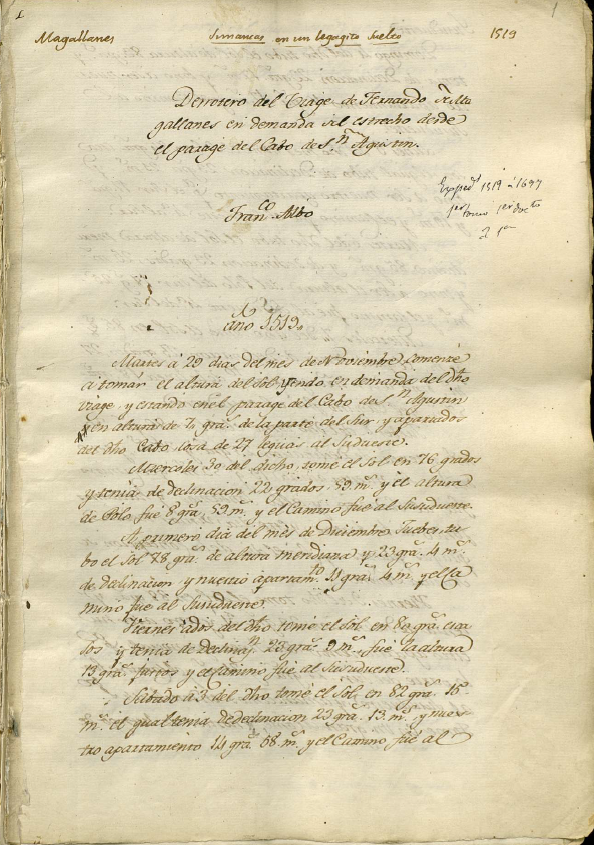 1
1
Magallanes Simancas en un legagito suelto 1519
Derrotero del Viage de Fernando de Ma
gallanes en demanda del estrecho desde
el parage del Cabo de Sn Agustin.
Expedt 1519 á 1697
1er tomo
Franco Albo
Año 1519.
Martes á 29 dias del mes de Noviembre comencé
á tomar el altura del Sol yendo en demanda del dho
viage, y estando en el parage del Cabo de Sn Agustin
y en altura de 7 grads de la parte del Sur, y apartados
del dho Cabo cosa de 27 leguas al Sudueste.
Miercoles 30 del dicho, tomé el Sol en 76 grados
y tenia de declinacion 22 grados 59 ms y el altura
de Polo fué 8 gras 59 ms y el Camino fué al Sursudueste.
A primero dia del mes de Diciembre Jueves, tu
bo el Sol 78 gras de altura meridiana y 23 gras 4 ms
de declinacion y nuestro apartamto 11 gras 4 ms y el Ca
mino fué al Sursudueste.
Viernes á dos del dho tomé el Sol en 80 gras cier
tos y tenia de declinan 23 gras 9 ms fué la altura
13 gras justos y el camino fué al Sursudueste.
Sabado á 3 del dho tomé el Sol en 82 gras 15
ms el qual tenia de declinacion 23 gras 13 ms y nues
tro apartamiento 14 gras 58 ms y el Camino fué al